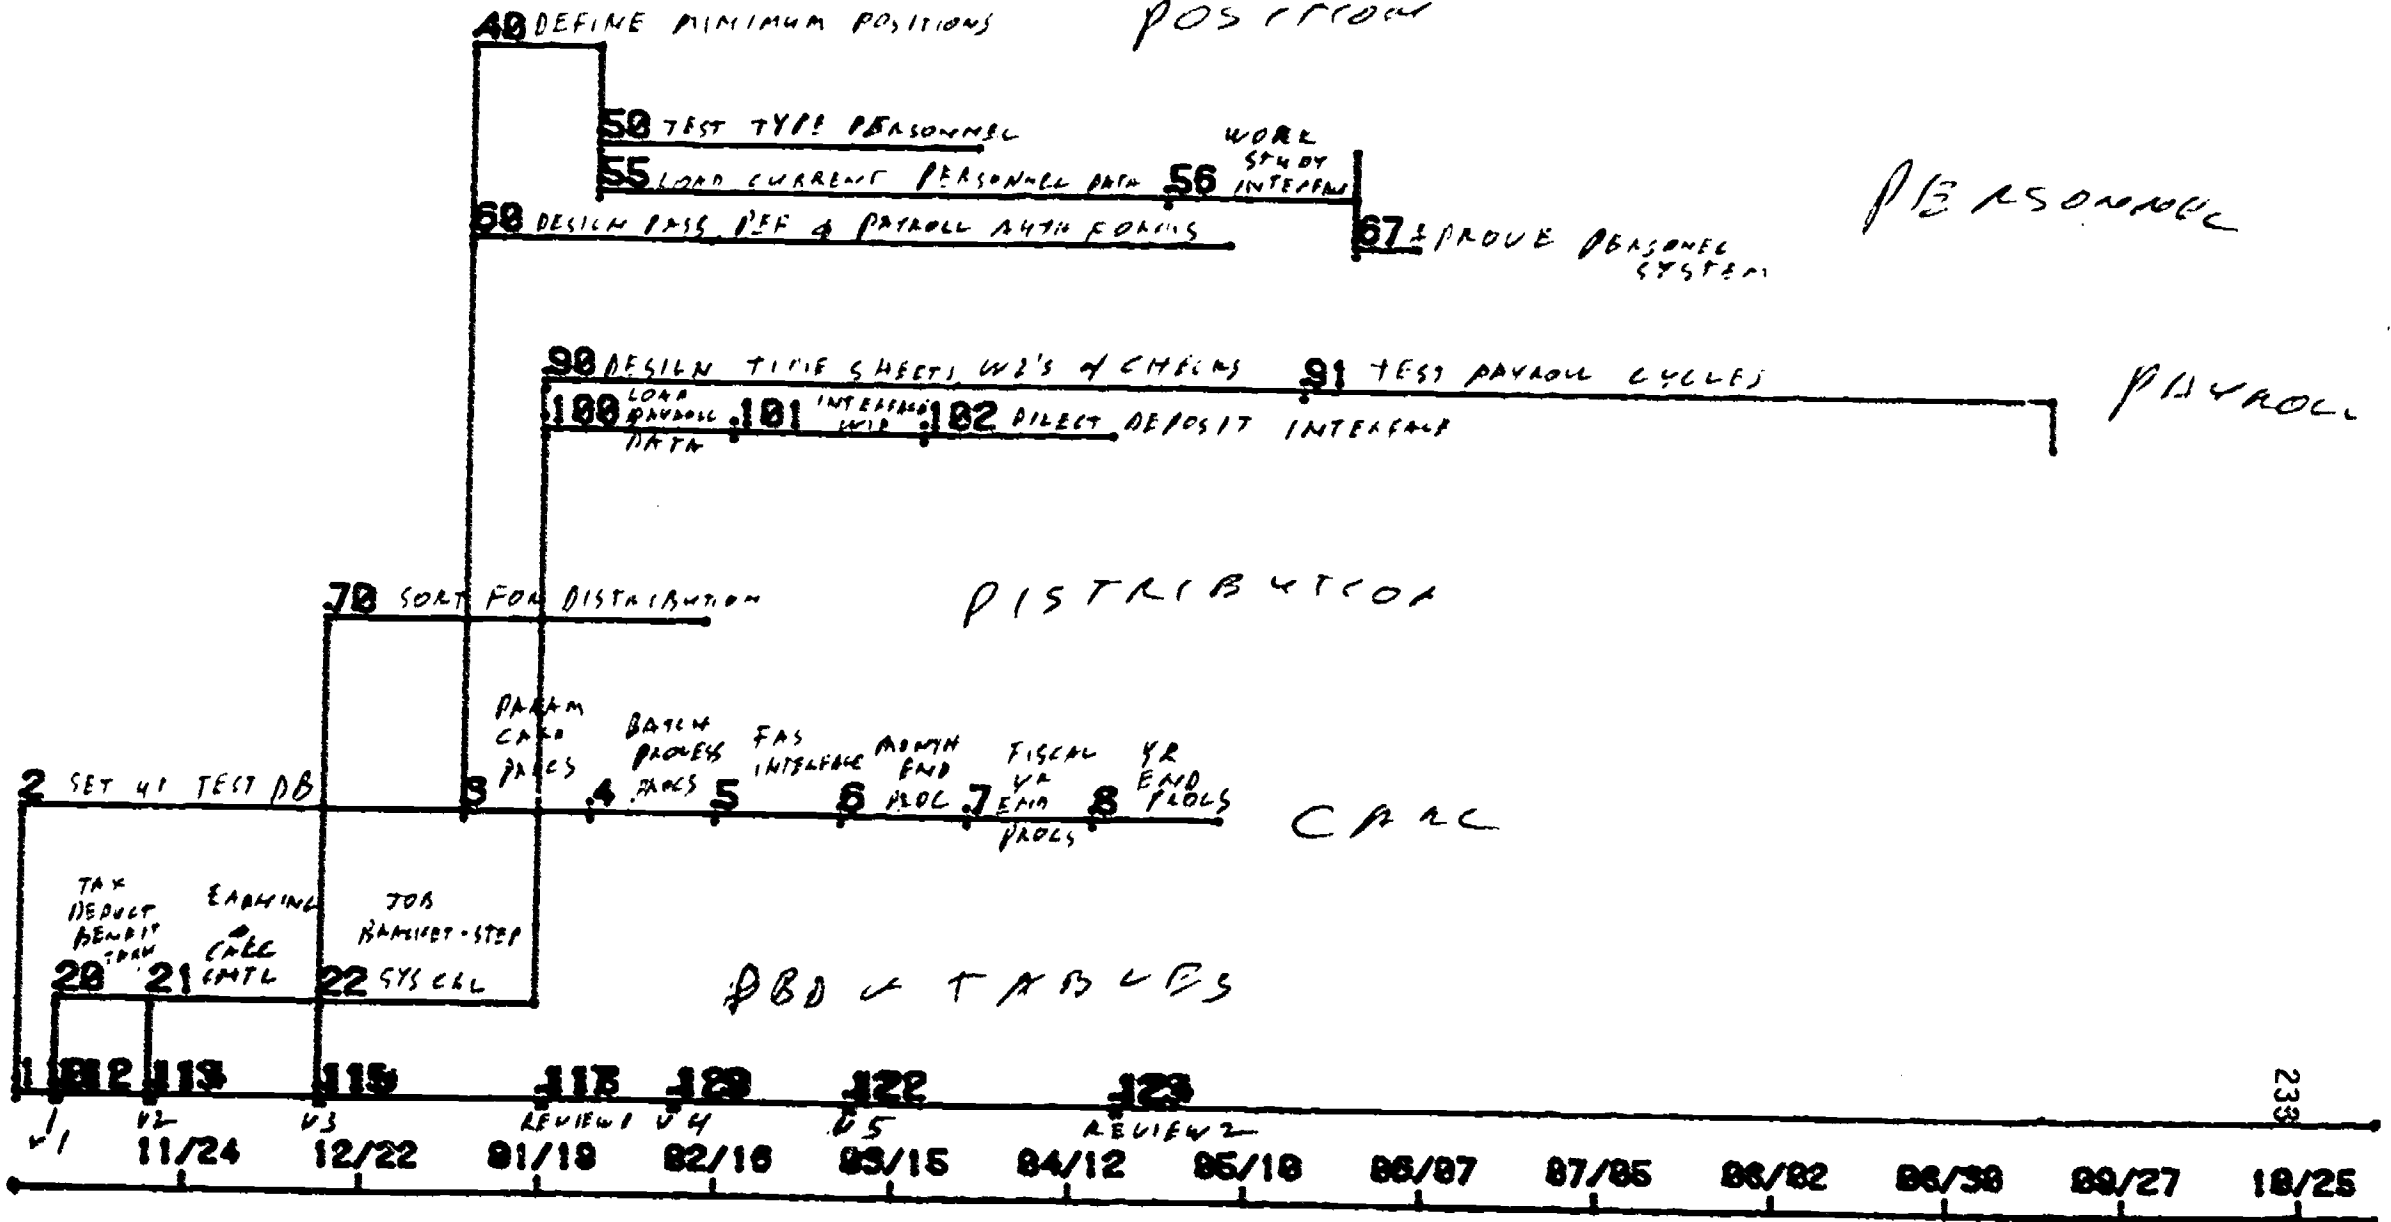 40 DEFINE MINIMUM POSITIONS
POSITION
50 TEST TYPE PERSONNEL
55 LOAD CURRENT PERSONNEL DATA
56
WORK
STUDY
60 DESIGN PASS & PAYROLL AUTH FORMS
67 PROVE PERSONEL
SYSTEM
PERSONNEL
90 DESIGN TIME SHEETS W2'S & CHECKS
91 TEST PAYROLL CYCLES
PAYROLL
100 LOAD
PAYROLL
DATA
101
102 DIRECT DEPOSIT INTERFACE
70 SORT FOR DISTRIBUTION
DISTRIBUTION
2 SET UP TEST DB
3
PARAM
CARD
PROCS
4
BATCH
PROCESS
PROCS
5
FAS
INTERFACE
6
MONTH
END
PROC
7
FISCAL
YR
END
PROCS
8
YR
END
PROCS
CALC
20
TAX
DEDUCT
BENEFIT
21
EARNING
CALC
CNTL
22
JOB
SYS CAL
TABLES
112 113 115 122 123
V1 V2 V3 REVIEW 1 V4 V5 REVIEW 2
11/24 12/22 01/19 02/16 03/15 04/12 05/10 06/07 07/05 08/02 08/30 09/27 10/25
233